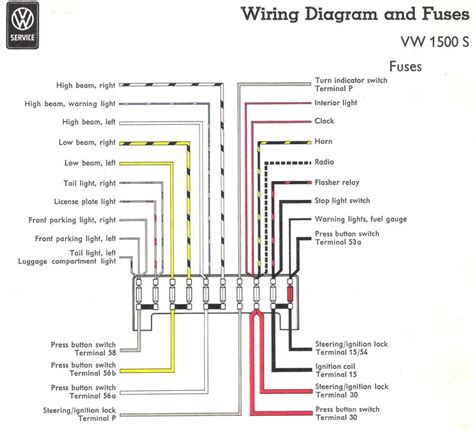 VW
SERVICE
Wiring Diagram and Fuses
VW 1500 S
Fuses
High beam, right
High beam, warning light
High beam, left
Low beam, right
Low beam, left
Tail light, right
License plate light
Front parking light, right
Front parking light, left
Tail light, left
Luggage compartment light
Turn indicator switch
Terminal P
Interior light
Clock
Horn
Radio
Flasher relay
Stop light switch
Warning lights, fuel gauge
Press button switch
Terminal 53a
Press button switch
Terminal 58
Press button switch
Terminal 56b
Press button switch
Terminal 56a
Steering/ignition lock
Terminal P
Steering/ignition lock
Terminal 15/54
Ignition coil
Terminal 15
Steering/ignition lock
Terminal 30
Press button switch
Terminal 30